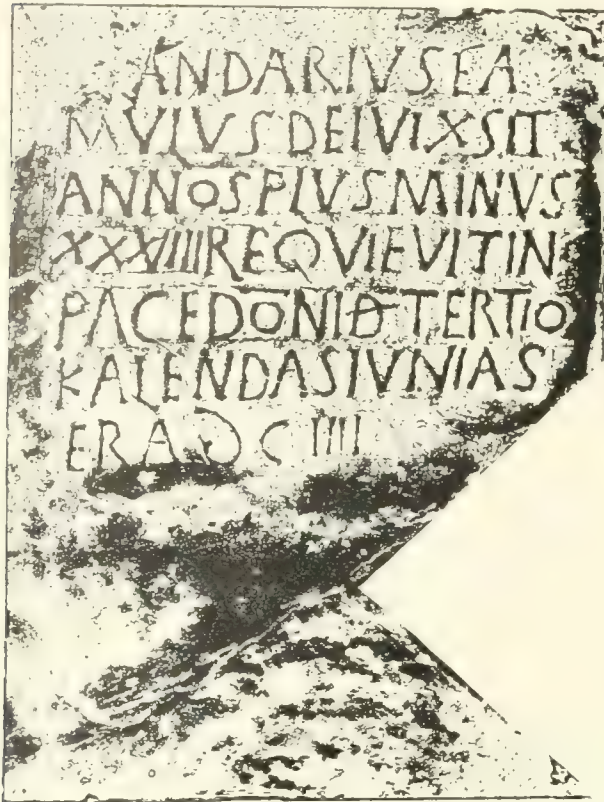 ANDARIVSFA
MVLVSDEIVIXSIT
ANNOSPLVSMINVS
XXXVIIIIREQVIEVITIN
PACEDONIDTERTIO
KALENDASIVNIAS
ERADCIIII